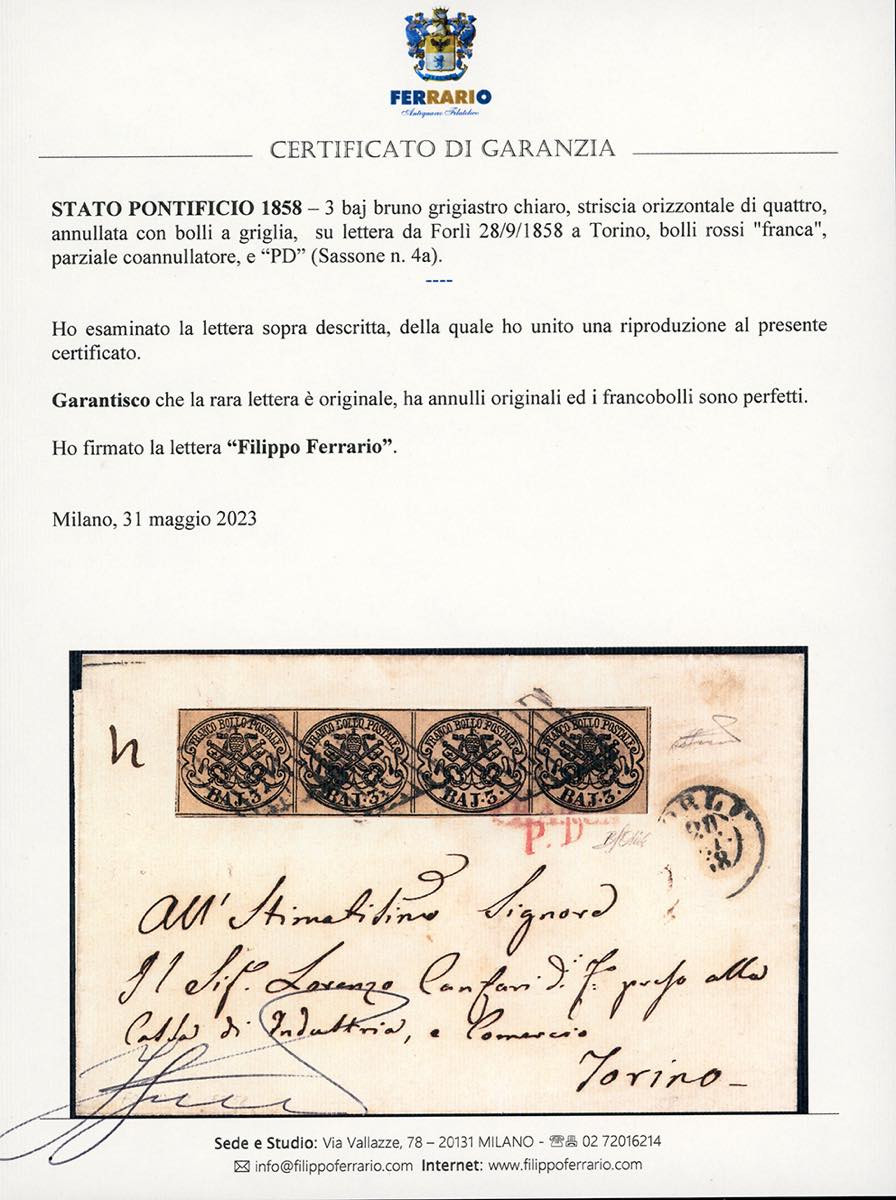 FERRARIO
Antiquario Filatelico
CERTIFICATO DI GARANZIA
STATO PONTIFICIO 1858 – 3 baj bruno grigiastro chiaro, striscia orizzontale di quattro,
annullata con bolli a griglia, su lettera da Forlì 28/9/1858 a Torino, bolli rossi "franca",
parziale coannullatore, e “PD” (Sassone n. 4a).
----
Ho esaminato la lettera sopra descritta, della quale ho unito una riproduzione al presente
certificato.
Garantisco che la rara lettera è originale, ha annulli originali ed i francobolli sono perfetti.
Ho firmato la lettera “Filippo Ferrario”.
Milano, 31 maggio 2023
FRANCO BOLLO POSTALE FRANCO BOLLO POSTALE FRANCO BOLLO POSTALE FRANCO BOLLO POSTALE
BAJ.3. BAJ.3. BAJ.3. BAJ.3.
P.D
All' Stimatisimo Signore
Il Sig. Lorenzo Canfari di F. preso alla
Cassa di Industria, e Comercio
Torino
Sede e Studio: Via Vallazze, 78 – 20131 MILANO - 02 72016214
info@filippoferrario.com Internet: www.filippoferrario.com